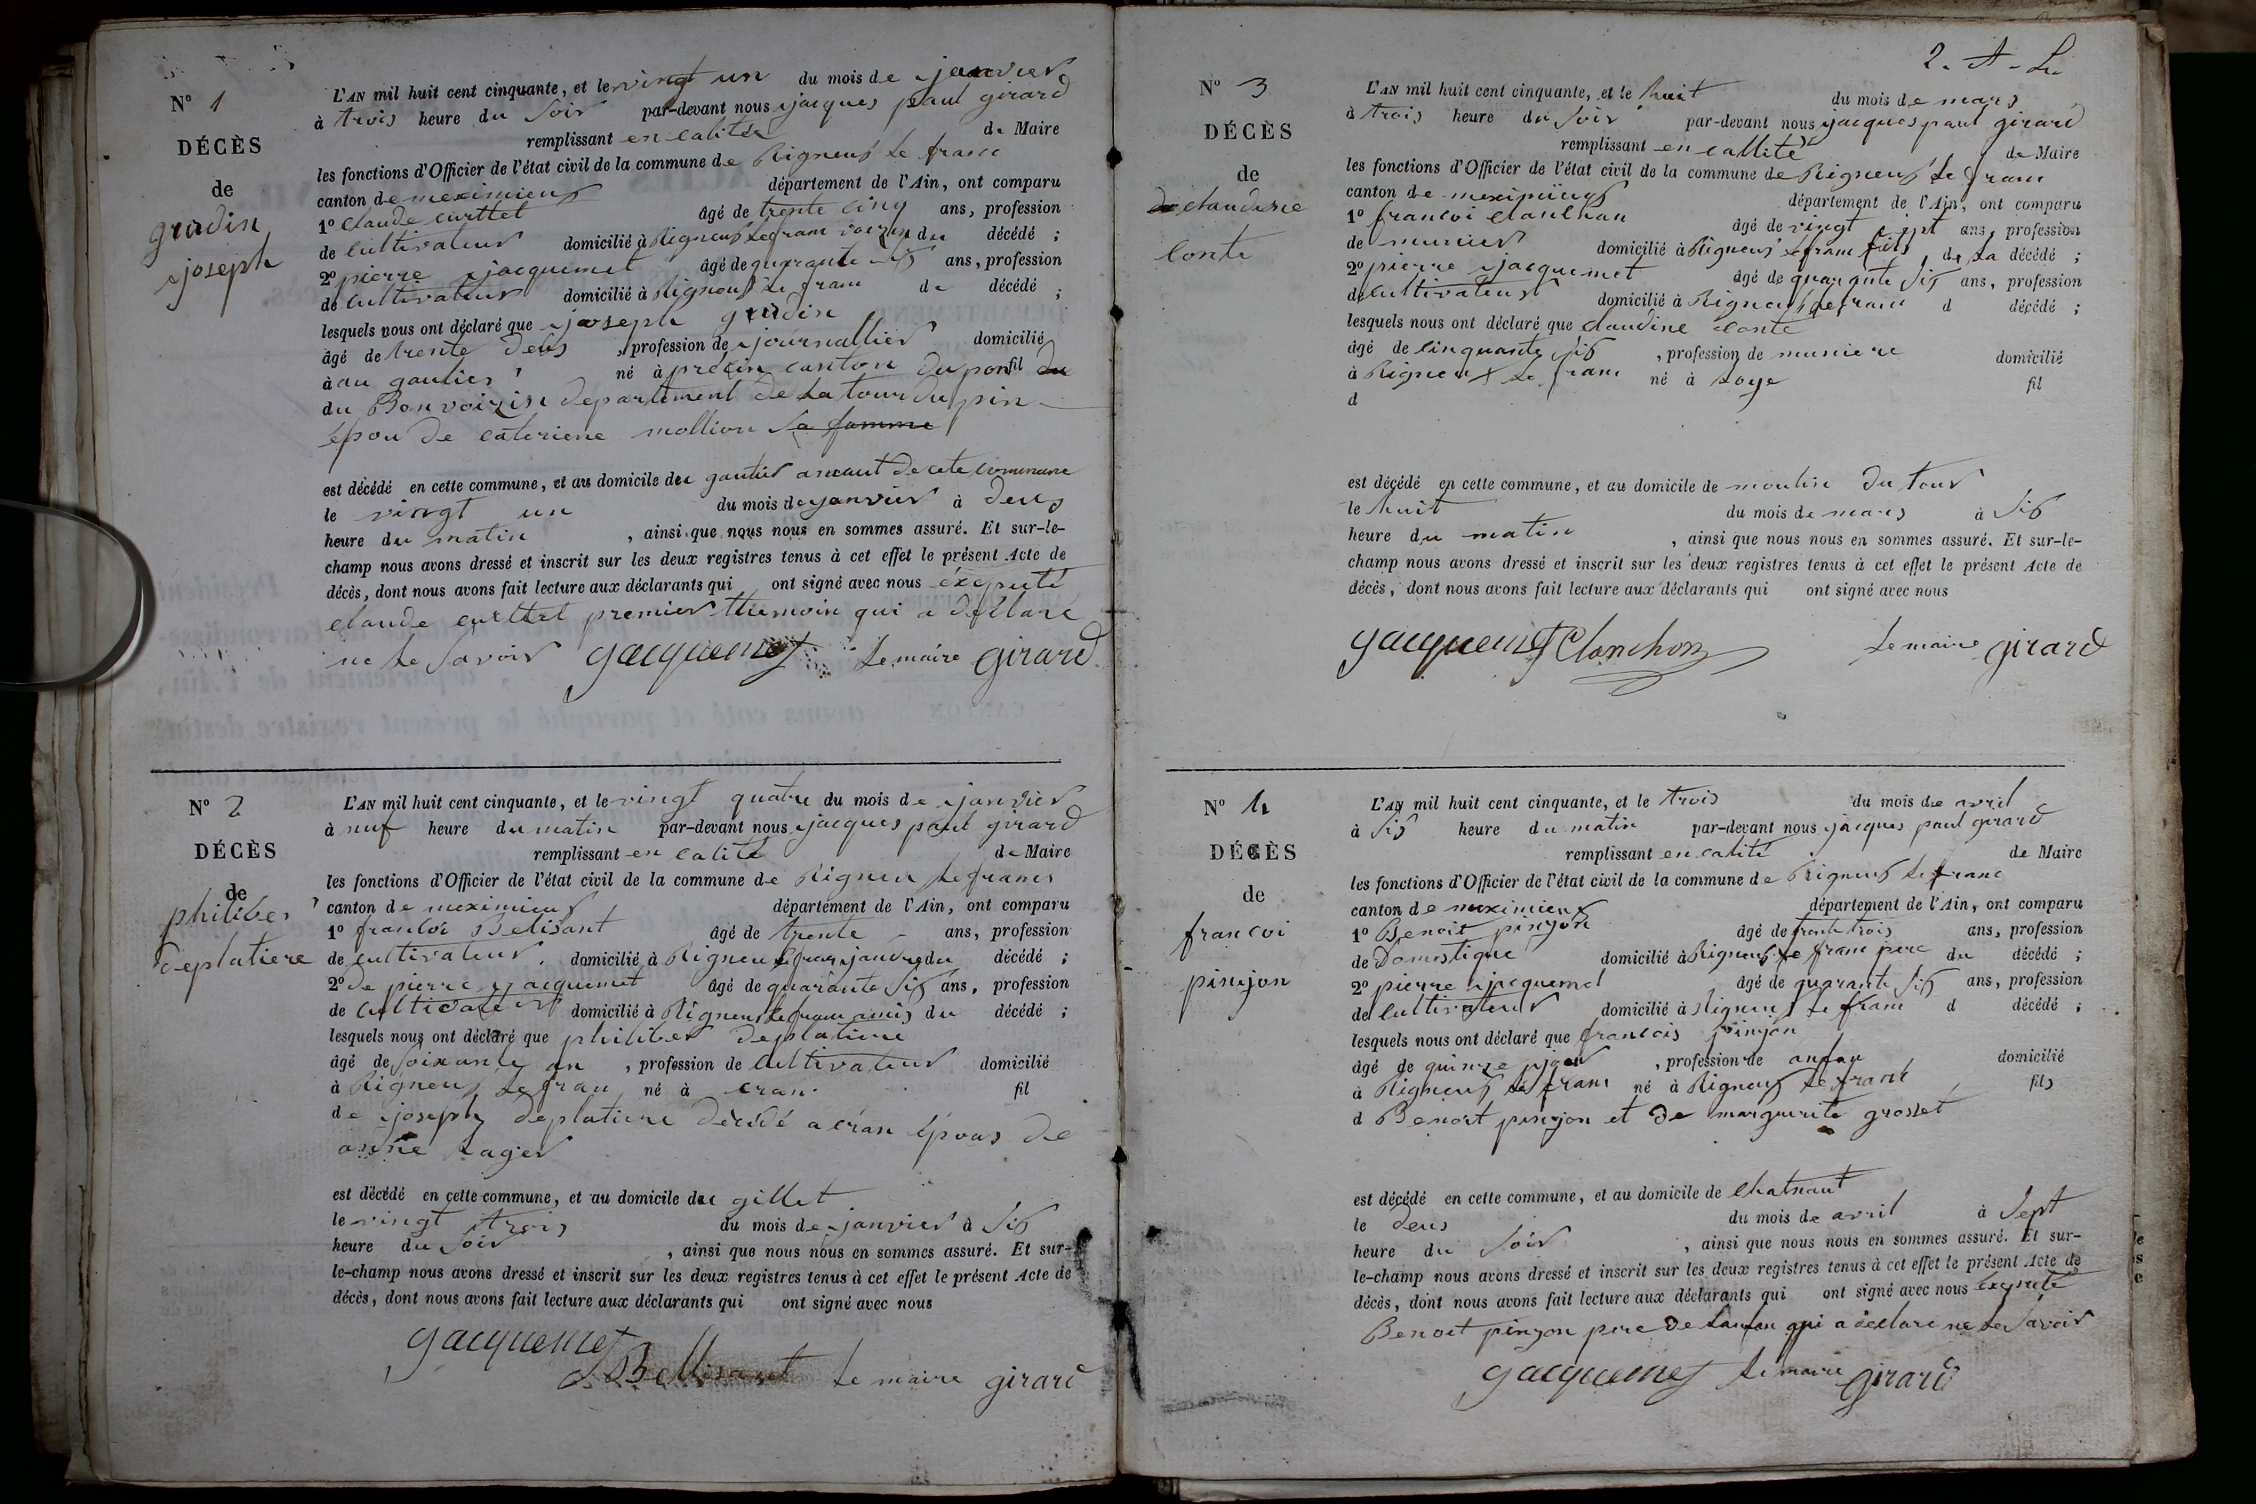 N° 1
DÉCÈS
de
gradin
joseph
L'AN mil huit cent cinquante, et le vingt un du mois de janvier
à trois heure du soir par-devant nous jacques paul girard
remplissant en calitée de Maire
les fonctions d'Officier de l'état civil de la commune de Rigneux le franc
canton de meximieux département de l'Ain, ont comparu
1° claude curttet âgé de trente cinq ans, profession
de cultivateur domicilié à Rigneux le franc voizin du décédé ;
2° pierre jacquemet âgé de quarante six ans, profession
de cultivateur domicilié à Rigneux le franc de décédé ;
lesquels nous ont déclaré que joseph gradin
âgé de trente deux , profession de journallier domicilié
à au gautier né à prècin canton du pon fil du
du Bonvoizin departement de la tour du pin
épou de caterine mollion la famme
est décédé en cette commune, et au domicile du gautier ameaut de cete commune
le vingt un du mois de janvier à deux
heure du matin , ainsi que nous nous en sommes assuré. Et sur-le-
champ nous avons dressé et inscrit sur les deux registres tenus à cet effet le présent Acte de
décès, dont nous avons fait lecture aux déclarants qui ont signé avec nous éxcputé
claude curttet premier themoin qui a déclaré
ne le savoir jacquemet le maire girard
N° 2
DÉCÈS
de
philiber
deplatiere
L'AN mil huit cent cinquante, et le vingt quatre du mois de janvier
à nuf heure du matin par-devant nous jacques paul girard
remplissant en calité de Maire
les fonctions d'Officier de l'état civil de la commune de Rigneu le franc
canton de meximieux département de l'Ain, ont comparu
1° francoi Belisant âgé de trente ans, profession
de cultivateur domicilié à Rigneu le franc jandre du décédé ;
2° de pierre jacquemet âgé de quarante six ans, profession
de cultivateur domicilié à Rigneux le franc amis du décédé ;
lesquels nous ont déclaré que philiber deplatiere
âgé de soixante an , profession de cultivateur domicilié
à Rigneux le fran né à cran fil
de joseph deplatiere décédé a cran épous de
anne lager
est décédé en cette commune, et au domicile du gillet
le vingt trois du mois de janvier à six
heure du soir , ainsi que nous nous en sommes assuré. Et sur-
le-champ nous avons dressé et inscrit sur les deux registres tenus à cet effet le présent Acte de
décès, dont nous avons fait lecture aux déclarants qui ont signé avec nous
jacquemet
Bellisant le maire girard
2.
N° 3
DÉCÈS
de
claudine
conte
L'AN mil huit cent cinquante, et le huit du mois de mars
à trois heure du soir par-devant nous jacques paul girard
remplissant en callité de Maire
les fonctions d'Officier de l'état civil de la commune de Rigneux le franc
canton de meximieux département de l'Ain, ont comparu
1° francoi clanchan âgé de vingt sept ans, profession
de munier domicilié à Rigneux le franc fils de la décédé ;
2° pierre jacquemet âgé de quarante six ans, profession
de cultivateur domicilié à Rigneux le franc d décédé ;
lesquels nous ont déclaré que claudine conte
âgé de cinquante six , profession de muniere domicilié
à Rigneux le franc né à loye fil
d
est décédé en cette commune, et au domicile de moulin du tour
le huit du mois de mars à six
heure du matin , ainsi que nous nous en sommes assuré. Et sur-le-
champ nous avons dressé et inscrit sur les deux registres tenus à cet effet le présent Acte de
décès, dont nous avons fait lecture aux déclarants qui ont signé avec nous
jacquemet Clanchon le maire girard
N° 4
DÉCÈS
de
francoi
pinjon
L'AN mil huit cent cinquante, et le trois du mois de avril
à six heure du matin par-devant nous jacques paul girard
remplissant en calité de Maire
les fonctions d'Officier de l'état civil de la commune de Rigneux le franc
canton de meximieux département de l'Ain, ont comparu
1° Benoit pinjon âgé de trente trois ans, profession
de Domestique domicilié à Rigneux le franc pere du décédé ;
2° pierre jacquemet âgé de quarante six ans, profession
de cultivateur domicilié à Rigneux le franc d décédé ;
lesquels nous ont déclaré que francois pinjon
âgé de quinze jour , profession de anfan domicilié
à Rigneux le franc né à Rigneux le franc fils
d Benoit pinjon et de marguerite grosset
est décédé en cette commune, et au domicile de Chatnant
le deux du mois de avril à sept
heure du soir , ainsi que nous nous en sommes assuré. Et sur-
le-champ nous avons dressé et inscrit sur les deux registres tenus à cet effet le présent Acte de
décès, dont nous avons fait lecture aux déclarants qui ont signé avec nous excputé
Benoit pinjon pere de lanfan qui a déclaré ne le savoir
jacquemet le maire girard